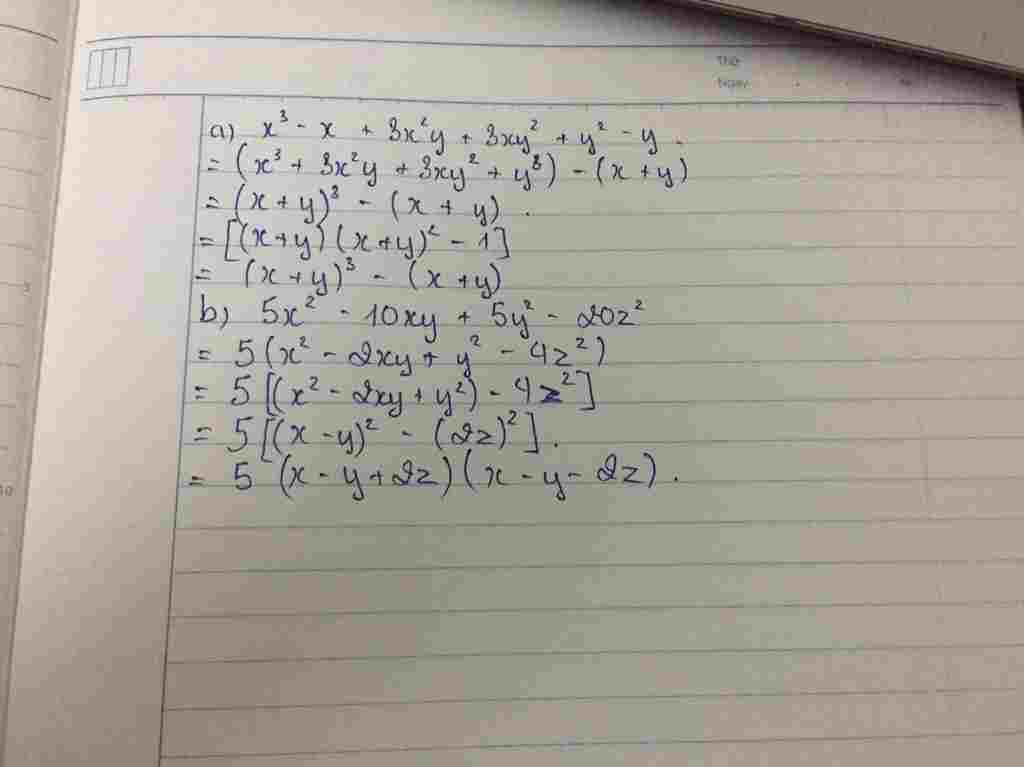 Thứ
Ngày
a) x³ - x + 3x²y + 3xy² + y² - y.
= (x³ + 3x²y + 3xy² + y³) - (x + y)
= (x + y)³ - (x + y).
= [(x + y) (x + y)² - 1]
= (x + y)³ - (x + y)
b) 5x² - 10xy + 5y² - 20z²
= 5 (x² - 2xy + y² - 4z²)
= 5 [(x² - 2xy + y²) - 4z²]
= 5 [(x - y)² - (2z)²].
= 5 (x - y + 2z) (x - y - 2z).